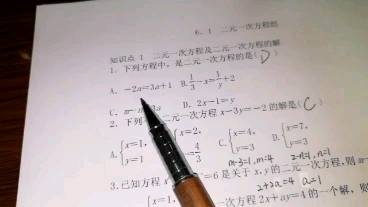 6.1 二元一次方程组
知识点 1 二元一次方程及二元一次方程的解
1. 下列方程中，是二元一次方程的是(D)
A. -2a=3a+1 B. 1/3-x=1/y+2
D. 2x-1=y
2. 下列 二元一次方程 x-3y=-2 的解是(C)
A. {x=1, y=1 {x=2, =4/3 C. {x=4, y=3 D. {x=7, y=3
m-3=1, m=4 2-n=1, n=1
3. 已知方程 =6 是关于 x,y 的二元一次方程，则
2+2a=4 a=1
{x=1, 二元一次方程 2x+ay=4 的一个解，则